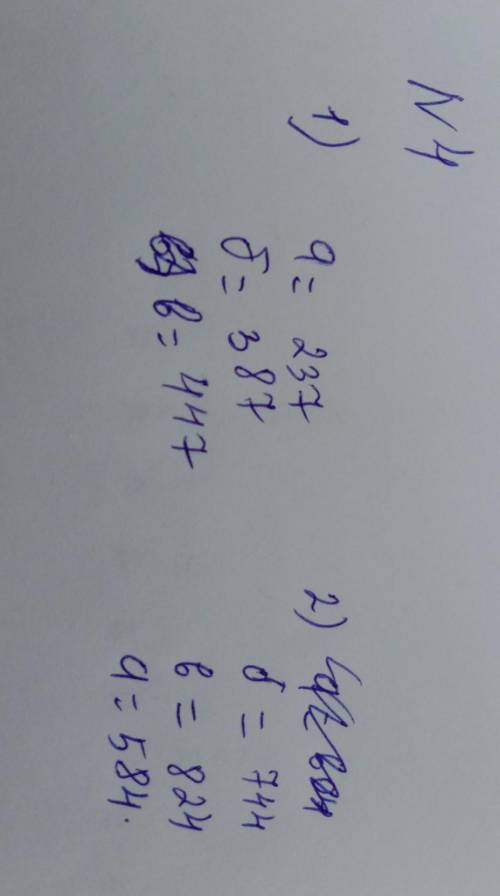 N 4
1)
а = 237
б = 387
в = 447
2)
б = 744
в = 824
а = 584.